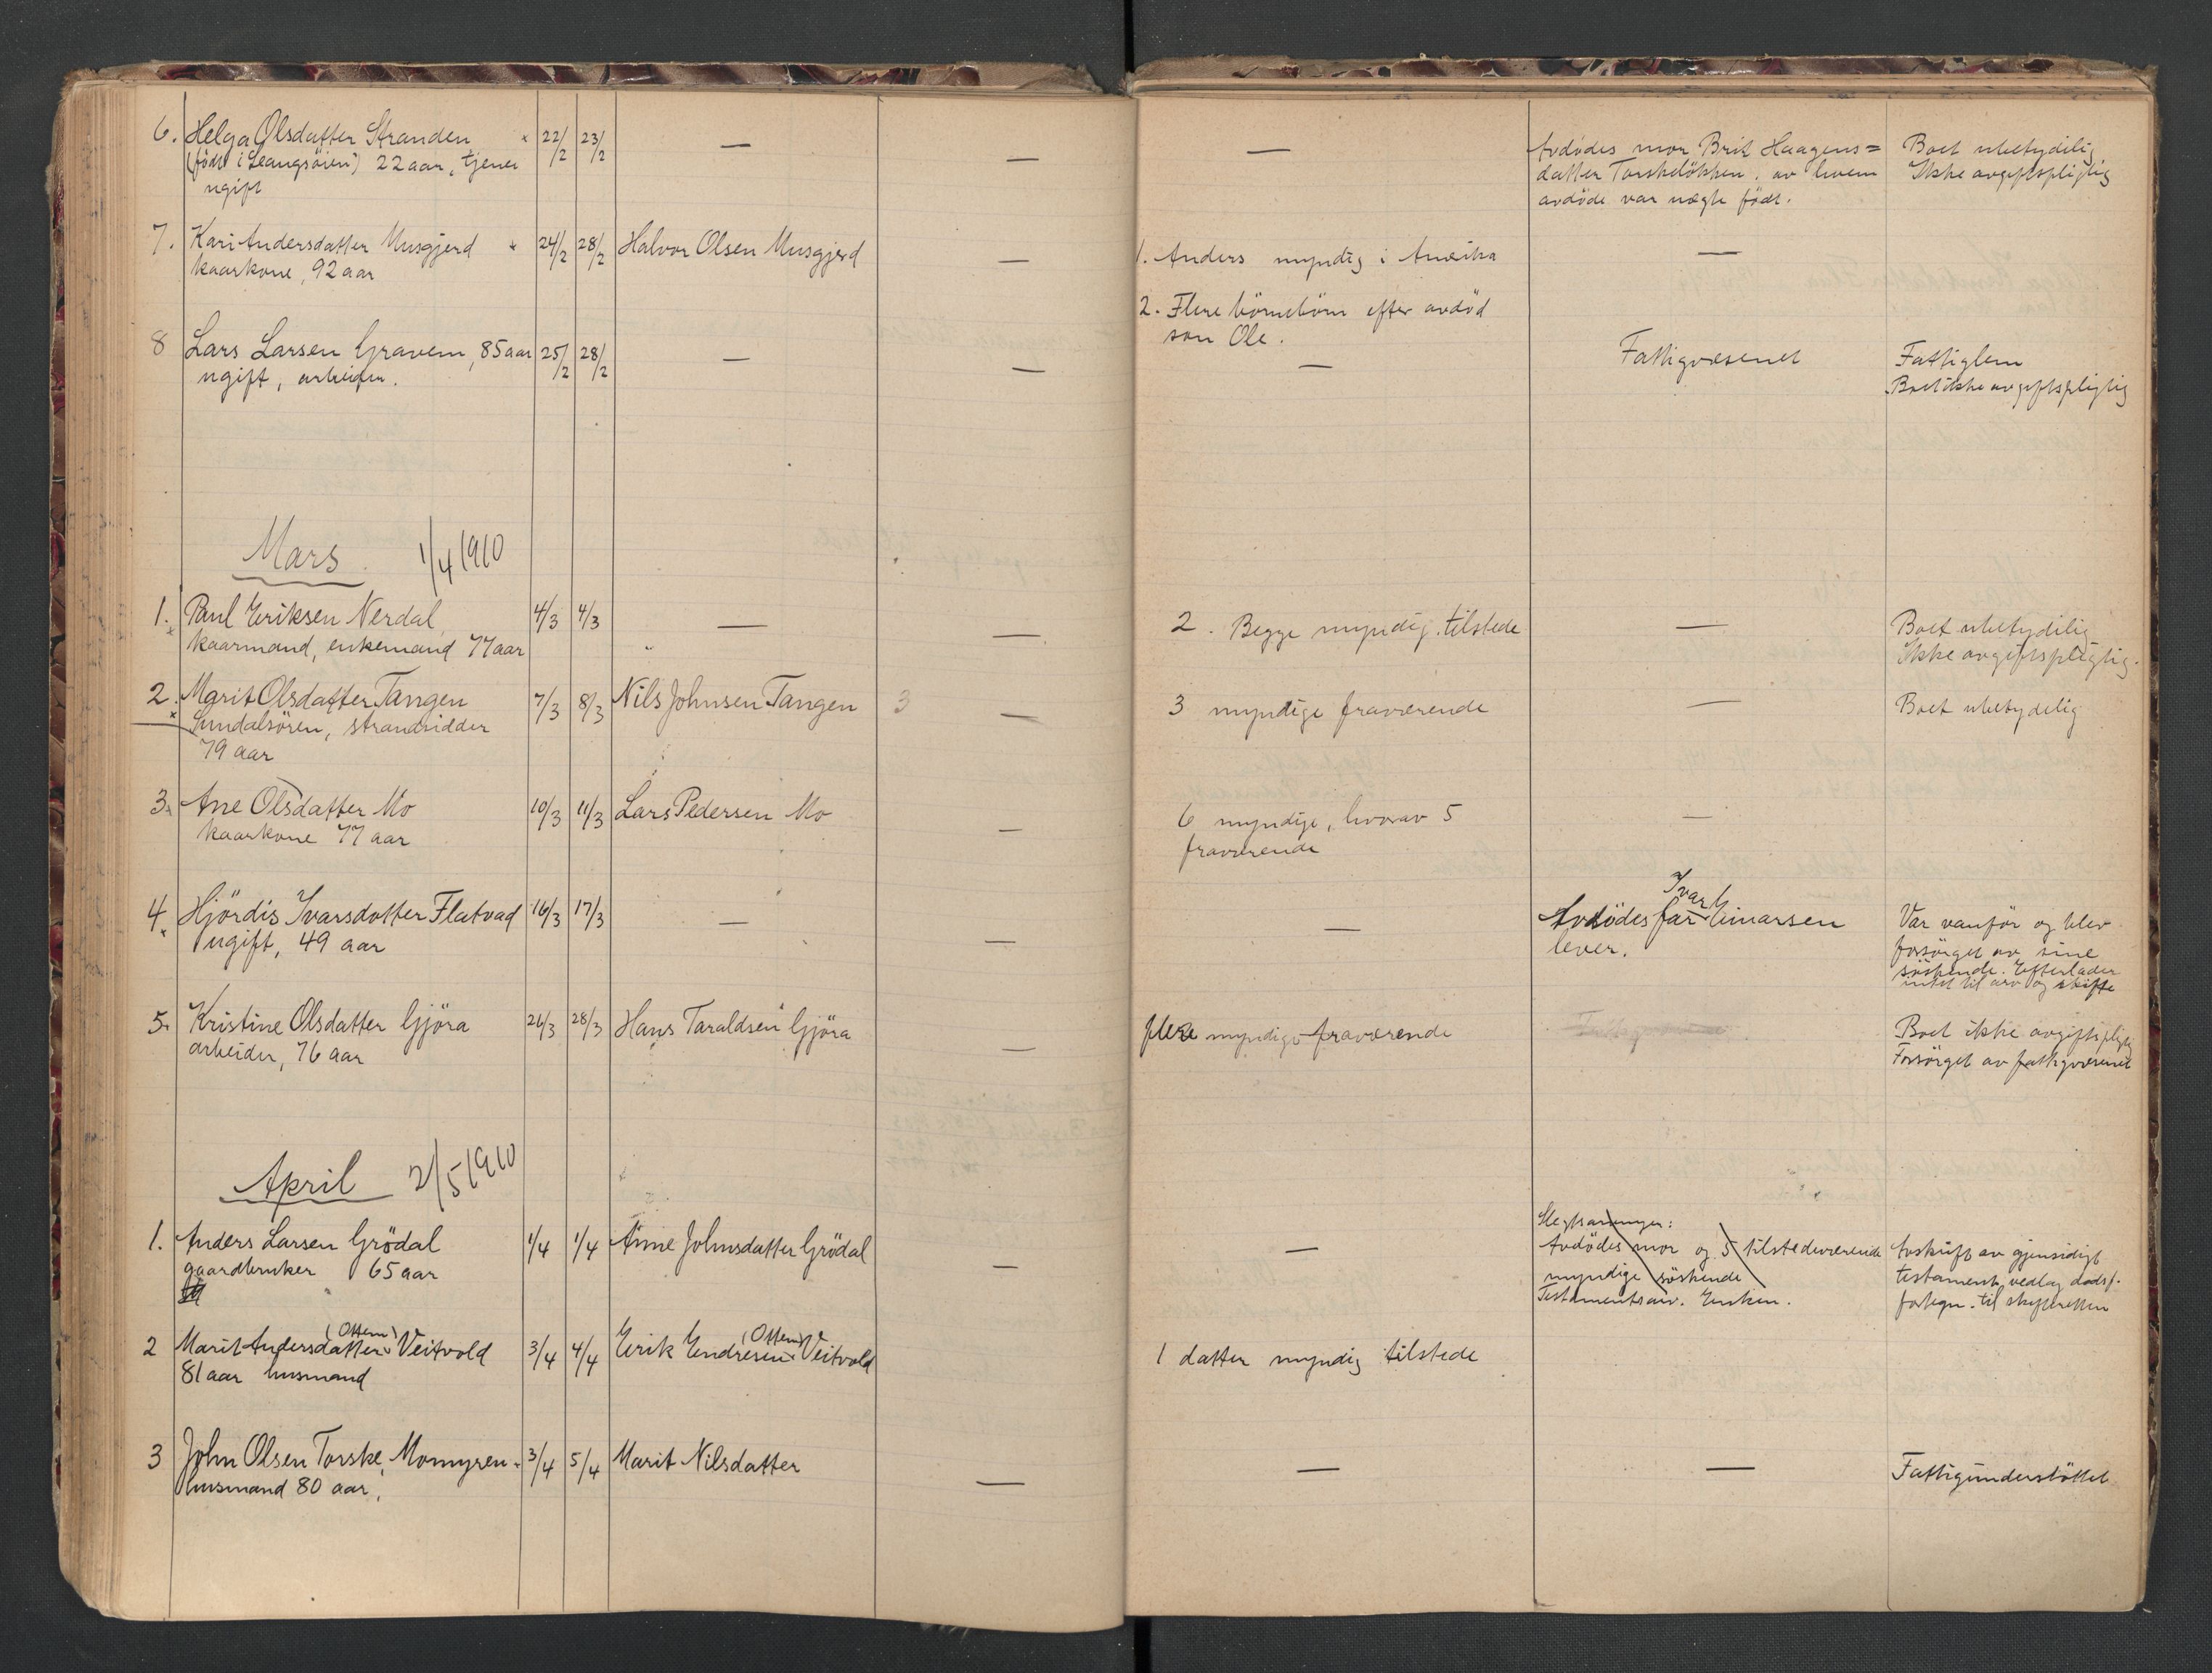 6. Helga Olsdatter Stranden 22/2 23/2 — — — Avdødes mor Brit Haagens= Boet ubetydelig
(født i Leangsøien) 22 aar, tjener datter Torskeløkken, av hvem Ikke avgiftspligtig
ugift avdøde var uegte født.
7. Kari Andersdatter Musgjerd 24/2 28/2 Halvor Olsen Musgjerd — 1. Anders myndig i Amerika —
kaarkone, 92 aar
2. Flere børnebørn efter avdød
søn Ole.
8 Lars Larsen Gravem, 85 aar 25/2 28/2 — — — Fattigvæsenet Fattiglem
ugift, arbeider. Boet ikke avgiftspligtig
Mars. 1/4 1910
1. Paul Eriksen Nerdal 4/3 4/3 — — 2. Begge myndig. tilstede — Boet ubetydelig
kaarmand, enkemand 77 aar Ikke avgiftspligtig.
2. Marit Olsdatter Tangen 7/3 8/3 Nils Johnsen Tangen 3 — 3 myndige fraværende — Boet ubetydelig
Sundalsøren, strandsidder
79 aar
3. Ane Olsdatter Mo 10/3 11/3 Lars Pedersen Mo — 6 myndige, hvorav 5 —
kaarkone 77 aar fraværende
4. Hjördis Ivarsdatter Flatvad 16/3 17/3 — — — Avdödes far Ivar Einarsen Var vanför og blev
ugift, 49 aar lever. forsörget av sine
söskende. Efterlader
intet til arv og skifte
5. Kristine Olsdatter Gjöra 26/3 28/3 Hans Taraldsen Gjöra — flere myndige fraværende Boet ikke avgiftspligtig
arbeider, 76 aar Forsörget av fattigvæsenet
April 2/5 1910
1. Anders Larsen Grödal 1/4 1/4 Anne Johnsdatter Grödal — — Slegtsarvinger:
gaardbruker 65 aar Avdödes mor og 5 tilstedeværende Avskrift av gjensidigt
myndige söskende testament vedlag dødsf.
Testamentsarv. Enken. fortegn. til skifteretten
2 Marit Andersdatter (Ottem) Veitvold 3/4 4/4 Erik Endresen (Ottem) Veitvold 1 datter myndig tilstede
81 aar husmand
3 John Olsen Torske, Momyren 3/4 5/4 Marit Nilsdatter — — — Fattigunderstöttet
husmand 80 aar,